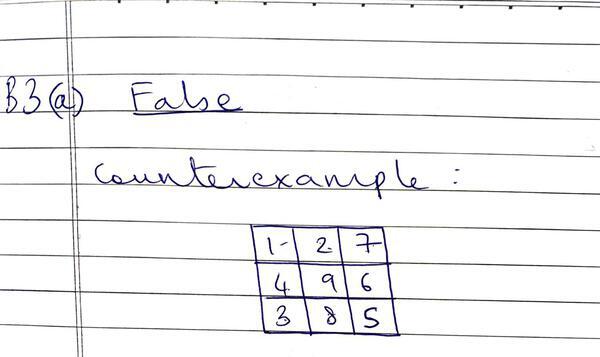 B3(a) False
Counterexample :
1 2 7
4 9 6
3 8 5